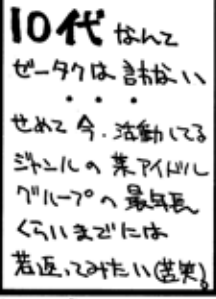 10代なんて
ゼータクは言わない
・・・
せめて今、活動してる
ジャンルの某アイドル
グループの最年長
くらいまでには
若返ってみたい(苦笑)。